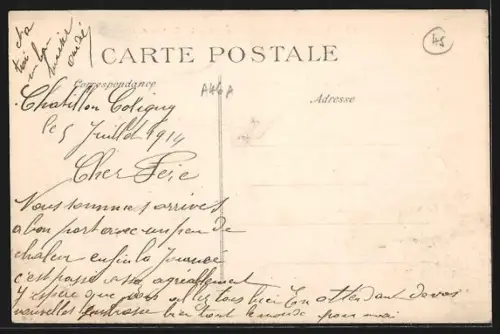 CARTE POSTALE
45
Correspondance
A46A
Adresse
Chatillon Coligny
le 5 Juillet 1914
Cher Père
Nous sommes arrivés
a bon port avec un peu de
chaleur enfin la Journée
c'est passé assé agréablement
J'espère que vous allez tous bien En attendant de vos
nouvelles bien tout le monde pour moi